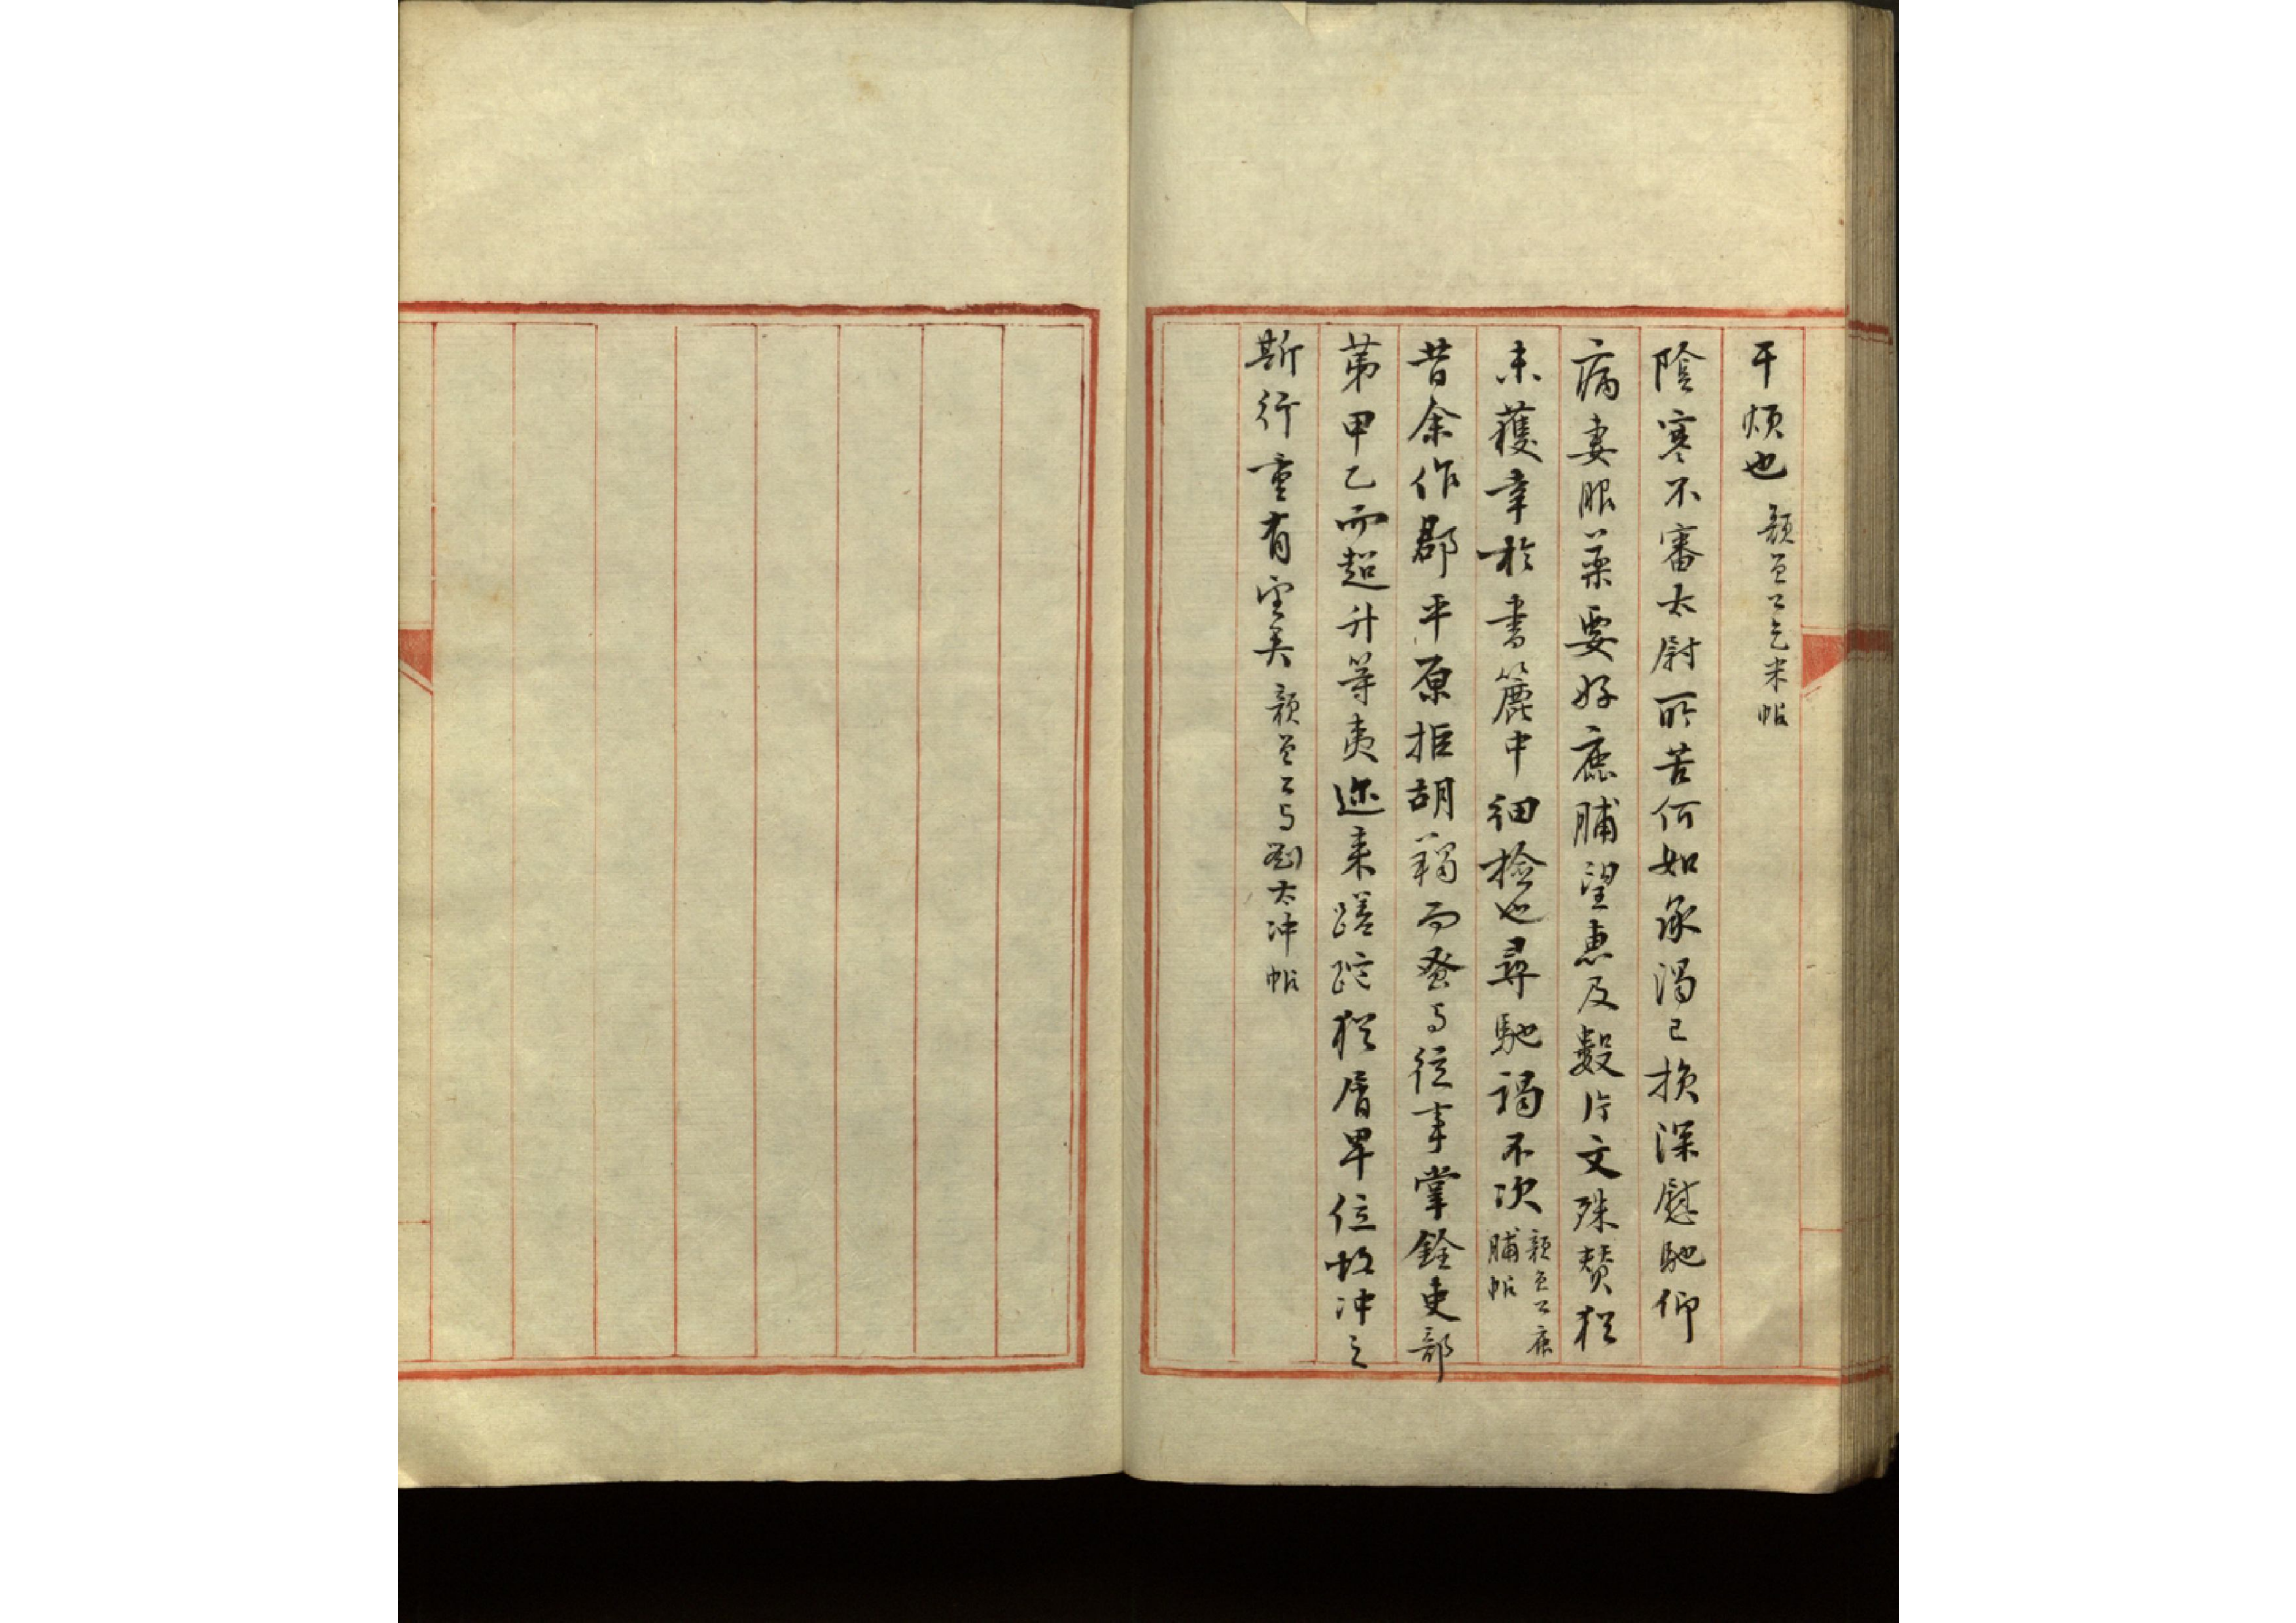 干煩也 顏魯公乞米帖
陰寒不審太尉所苦何如承渴已損深慰馳仰
病妻服藥要好鹿脯望惠及數片文殊贊猶
未獲幸於書簏中細撿也尋馳謁不次 顏魯公鹿
脯帖
昔余作郡平原拒胡羯而發与從事掌銓吏部
第甲乙而超升等夷邇来蹉跎猶屑卑位故冲之
斯行重有望矣 顏魯公与劉太冲帖